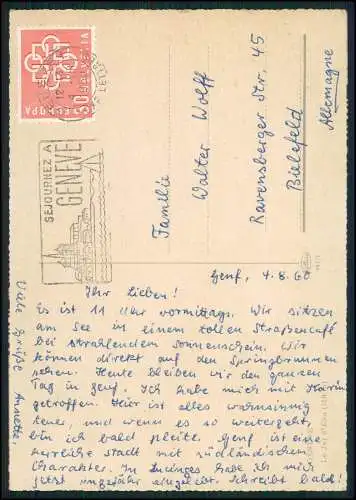 HELVETIA
EUROPA
SEJOURNEZ A
GENEVE
Familie
Walter Wolff
Ravensberger Str. 45
Bielefeld
Allemagne
Genf, 4.8.60
Ihr Lieben!
Es ist 11 Uhr vormittags. Wir sitzen
am See in einem tollen Straßencafé
bei strahlendem Sonnenschein. Wir
können direkt auf den Springbrunnen
sehen. Heute bleiben wir den ganzen
Tag in Genf. Ich habe mich mit Karin
getroffen. Hier ist alles wahnsinnig
teuer, und wenn es so weitergeht,
bin ich bald pleite. Genf ist eine
herrliche Stadt mit südländischem
Charakter. In habe ich mich
jetzt ungefähr eingelebt. Schreibt bald!
Viele Grüße
Annette.